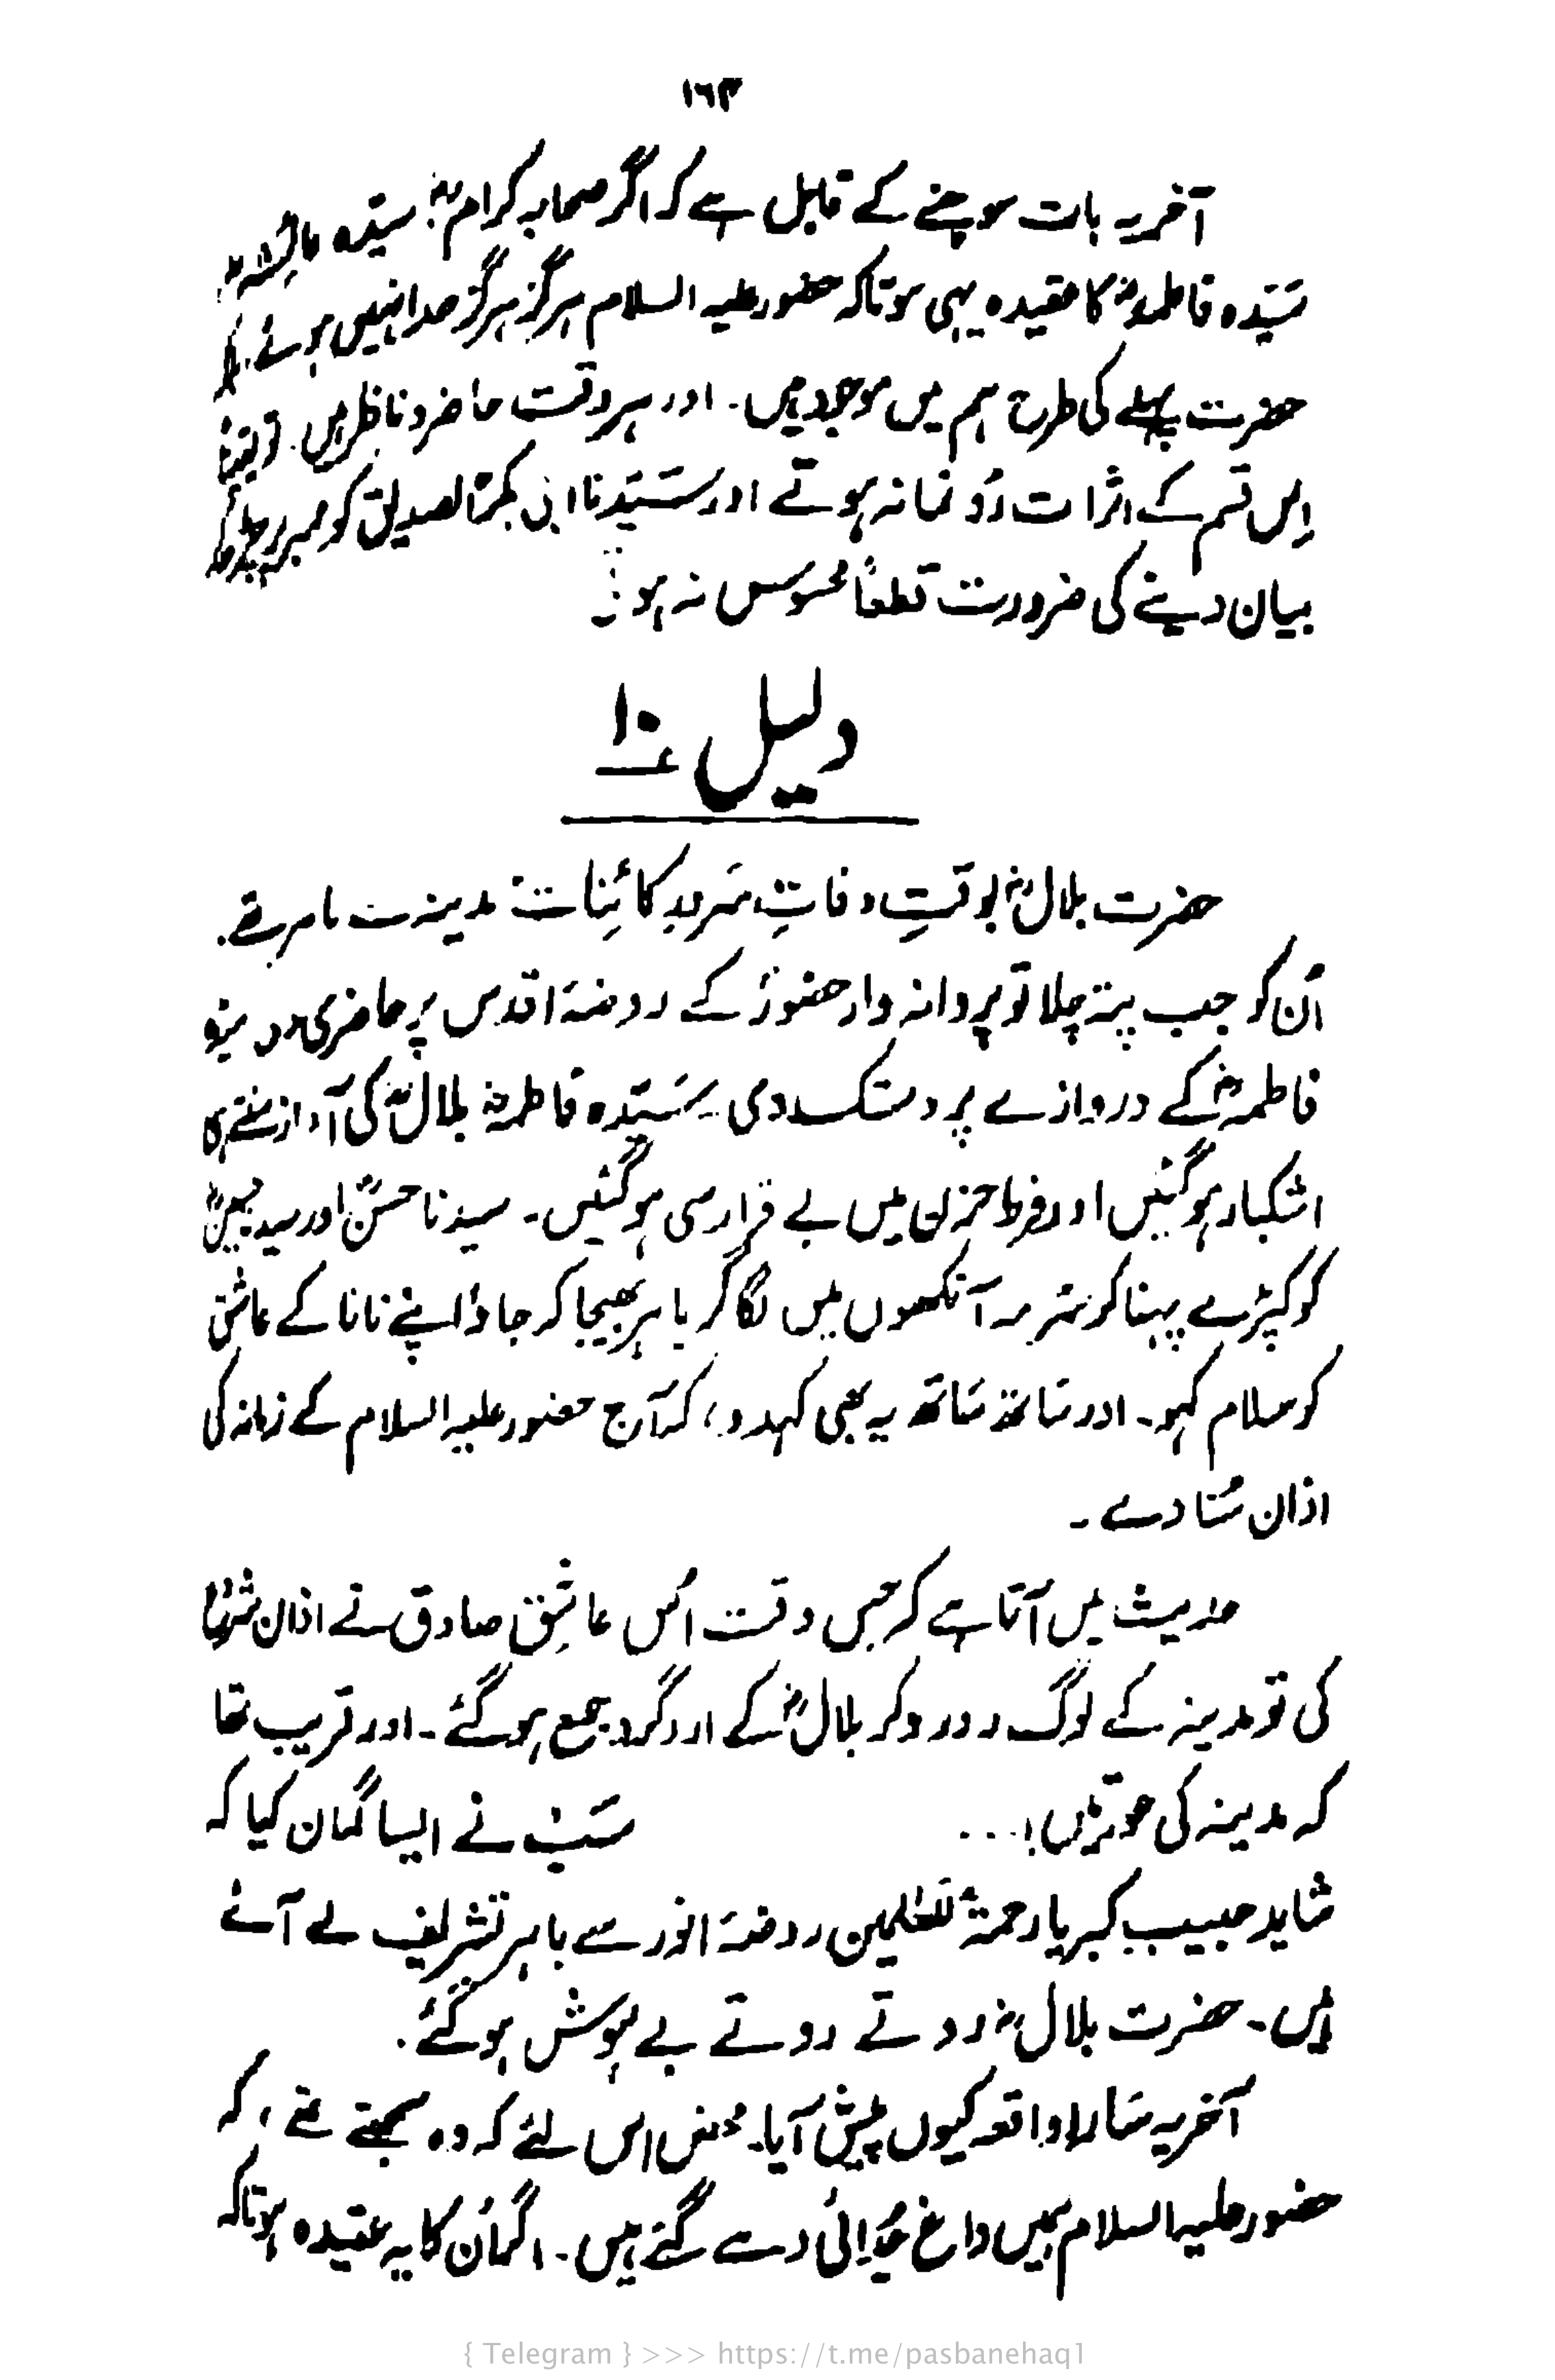 ١٦٣
آخر یہ بات سوچنے کے قابل ہے کہ اگر صحابہ کرامؓ سیّدہ عائشہؓ
سَیّدہ فاطمہؓ کا عقیدہ یہی ہوتا کہ حضور علیہ السلام ہرگز ہرگز جدا نہیں ہوئے
حضرت پہلے کی طرح ہم میں موجود ہیں۔ اور ہر وقت حاضر و ناظر ہیں۔ تو یقیناً
اِس قسم کے اثرات رُو نما نہ ہوتے اور سَیّدنا ابی بکرؓ الصدیق کو ممبر پر
بیان دینے کی ضرورت قطعاً محسوس نہ ہوتی
دلیل ۱۰
حضرت بلالؓ بوقتِ وفاتِ سَرورِ کائنات مدینہ سے باہر تھے۔
اُن کو جب پتہ چلا تو پروانہ وار حضورؐ کے روضۂ اقدس پر حاضری دی
فاطمہؓ کے دروازے پر دستک دی۔ سَیّدہ فاطمہؓ بلالؓ کی آواز سنتے ہی
اشکبار ہوگئیں اور فرط حزن میں بے قرار سی ہوگئیں۔ سیدنا حسنؓ اور سیدنا حسینؓ
کو کپڑے پہنا کر سُرمہ آنکھوں میں لگا کر باہر بھیجا کہ جاؤ اپنے نانا کے عاشق
کو سلام کہو۔ اور سَاتھ سَاتھ یہ بھی کہدو، کہ آج حضور علیہ السلام کے زمانہ کی
اذان سُنا دے۔
حدیث میں آتا ہے کہ جس وقت اُس عاشِق صادق نے اذان شروع
کی تو مدینہ کے لوگ رو رو کر بلالؓ کے ارد گرد جمع ہو گئے۔ اور قریب تھا
کہ مدینہ کی عورتیں ... سَب نے ایسا گمان کیا کہ
شاید حبیب کبریا رحمۃ للعٰلمین روضۂ انور سے باہر تشریف لے آئے
ہیں۔ حضرت بلالؓ روتے روتے بے ہوش ہو گئے۔
آخر یہ سَارا واقعہ کیوں پیش آیا۔ محض اس لئے کہ وہ سمجھتے تھے، کہ
حضور علیہ السلام ہمیں داغ جُدائی دے گئے ہیں۔ اگر اُن کا یہ عقیدہ ہوتا کہ
{ Telegram } >>> https://t.me/pasbanehaq1